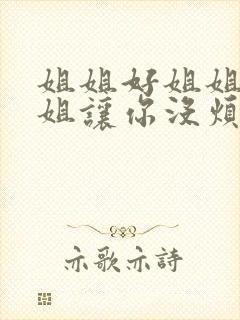 姐姐好姐姐
姐讓你沒煩
亦歌亦詩